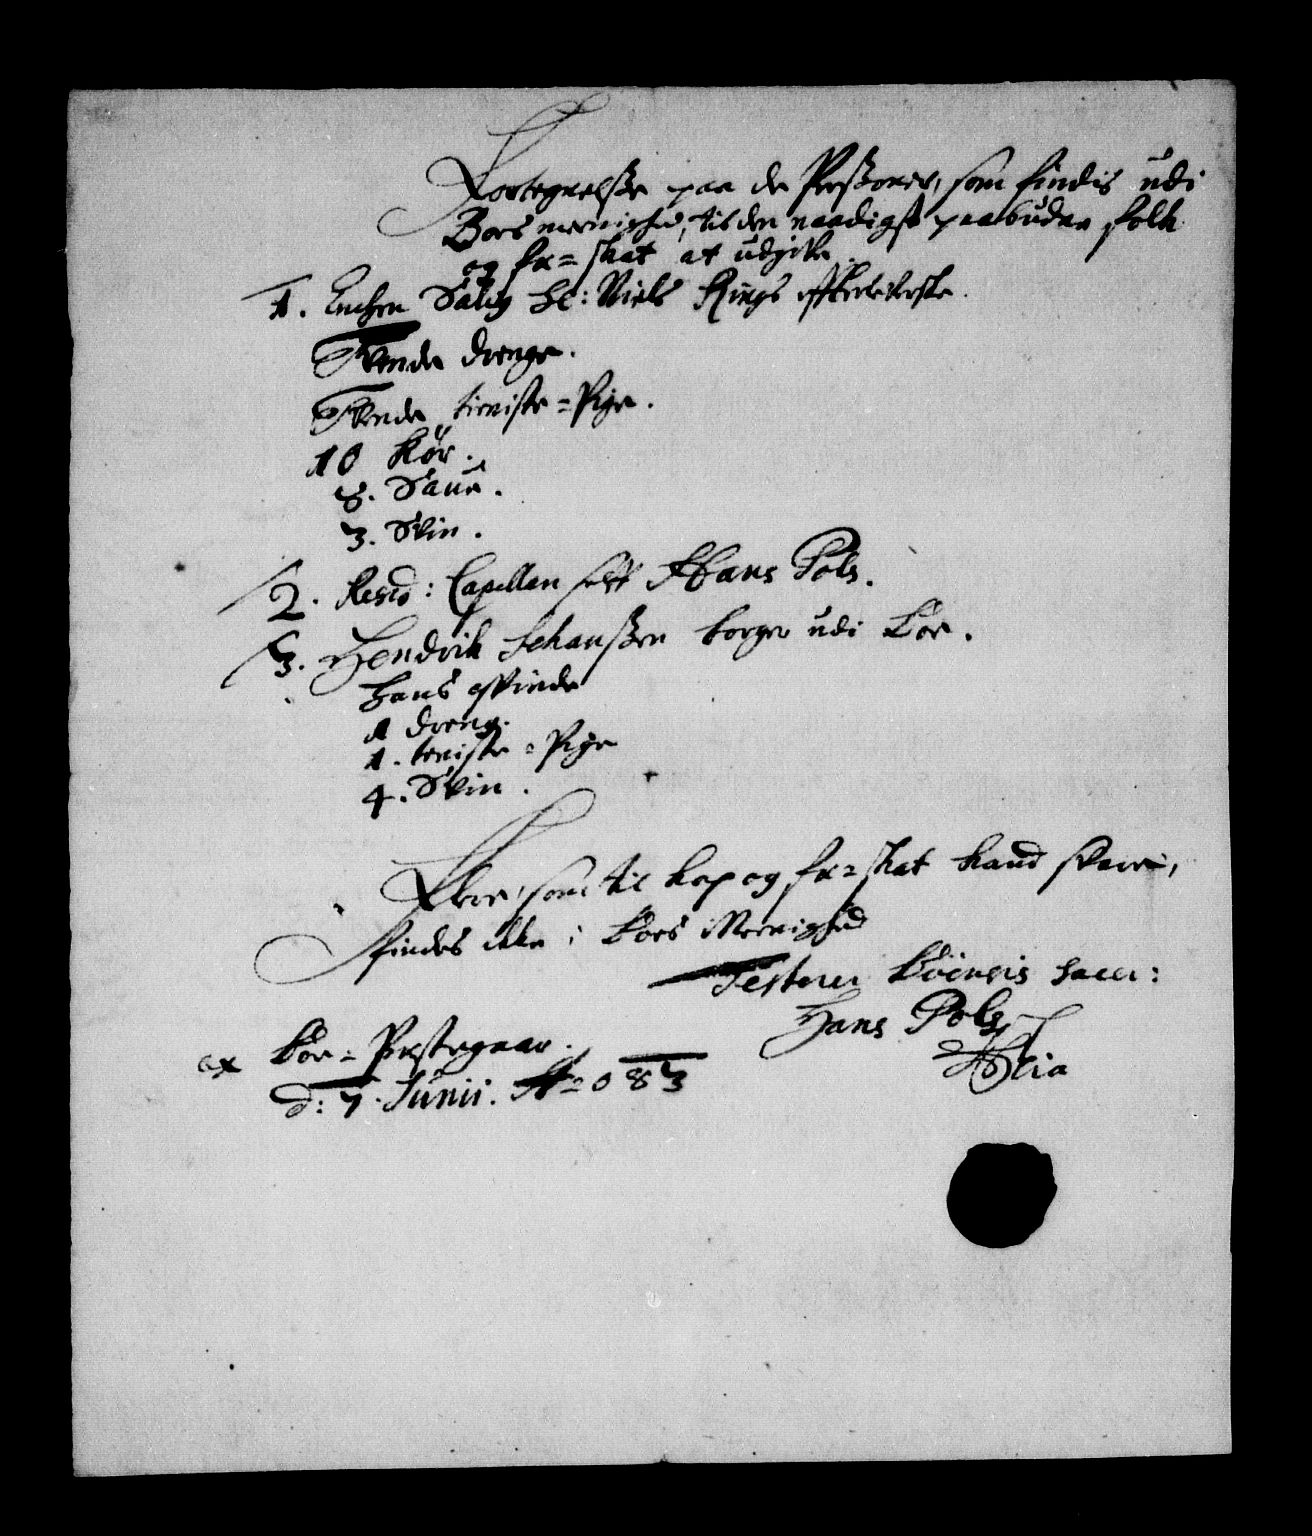 Fortegnelße paa de Perßoner, som findis udi
Boes meenighed, til den naadigst paabudne folk
og fæ=skat at udgifve.
1. Enchen Salig Hr: Niels Rings efterlefverske.
Tvende drenge.
Tvende tieniste=Pige.
10 Kør.
8. Saue.
3. Svin.
2. Resid: Capellan self Hans Pols.
3. Hendrik Johanßen borger udi Bøe.
Hans qvinde
1 dreng.
1. teniste=Pige
4. Svin.
Flere, som til kop og fæ=skat kand svare,
findes ikke i Boes Meenighed
Testerer Böensis sacer:
Hans Pols
Mia
ex Böe=Præstegaar.
d: 7. Junii. Ao 083